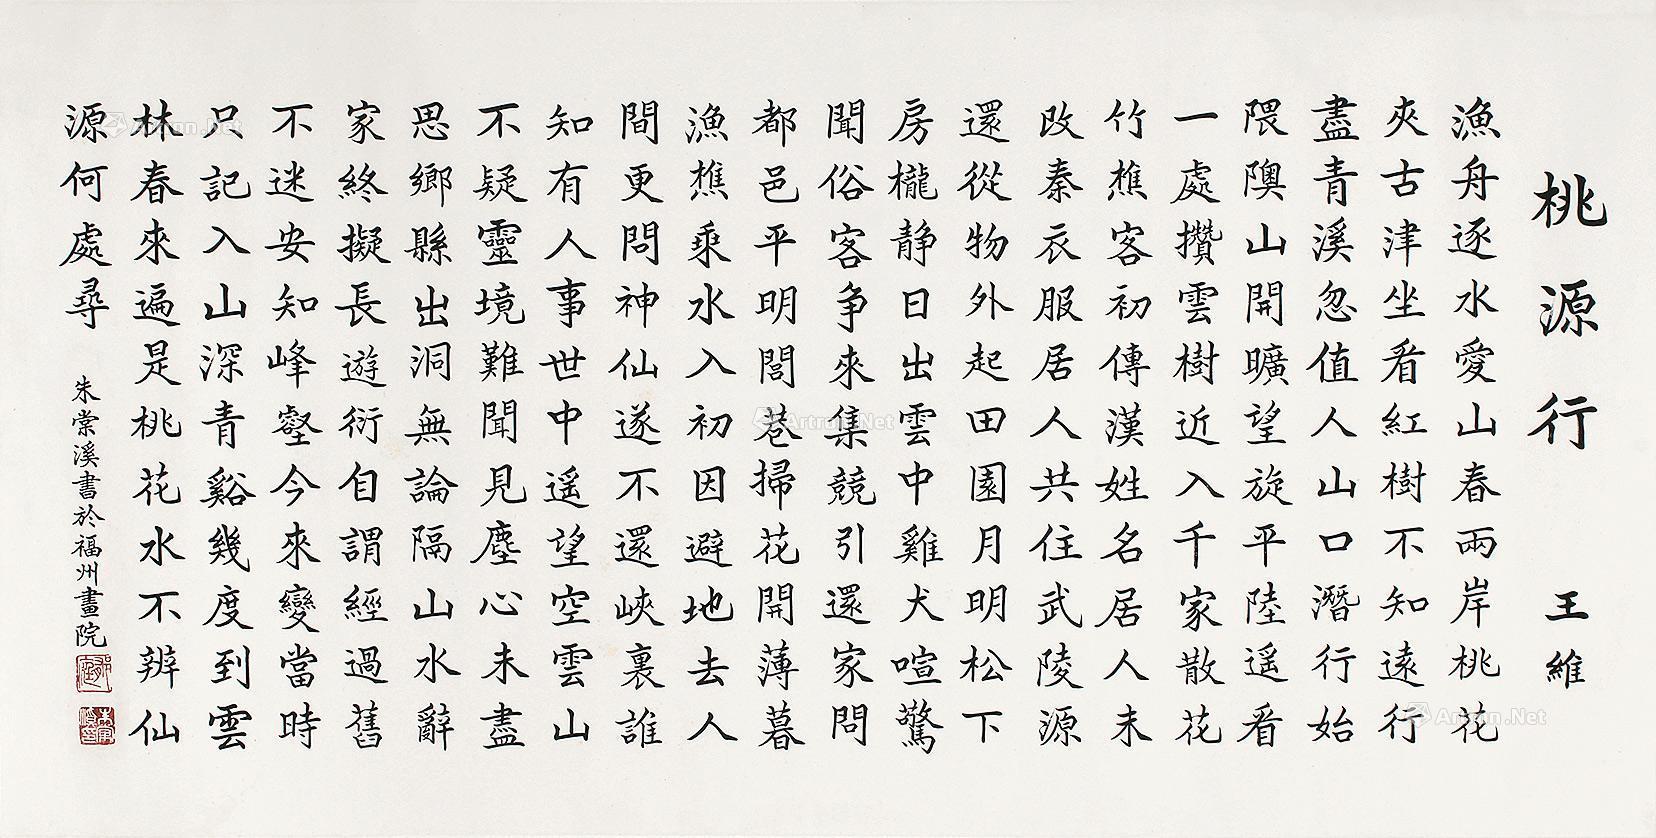 桃源行
王維
漁舟逐水愛山春兩岸桃花
夾古津坐看紅樹不知遠行
盡青溪忽值人山口潛行始
隈隩山開曠望旋平陸遥看
一處攢雲樹近入千家散花
竹樵客初傳漢姓名居人未
改秦衣服居人共住武陵源
還從物外起田園月明松下
房櫳静日出雲中雞犬喧驚
聞俗客争來集競引還家問
都邑平明閭巷掃花開薄暮
漁樵乘水入初因避地去人
間更問神仙遂不還峽裏誰
知有人事世中遥望空雲山
不疑靈境難聞見塵心未盡
思鄉縣出洞無論隔山水辭
家終擬長遊衍自謂經過舊
不迷安知峰壑今來變當時
只記入山深青谿幾度到雲
林春來遍是桃花水不辨仙
源何處尋
朱棠溪書於福州畫院
Artron.Net
Artron.Net
Artron.Net